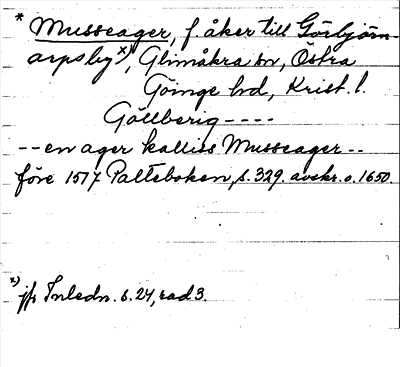 * Musseager, f. åker till Görbjörn-
arpsby x), Glimåkra sn, Östra
Göinge hd, Krist. l.
Göllberig ----
-- en ager kallies Musseager --
före 1517 Palteboken, s. 329. avskr. o. 1650.
x) jfr Inledn. s. 24, rad 3.